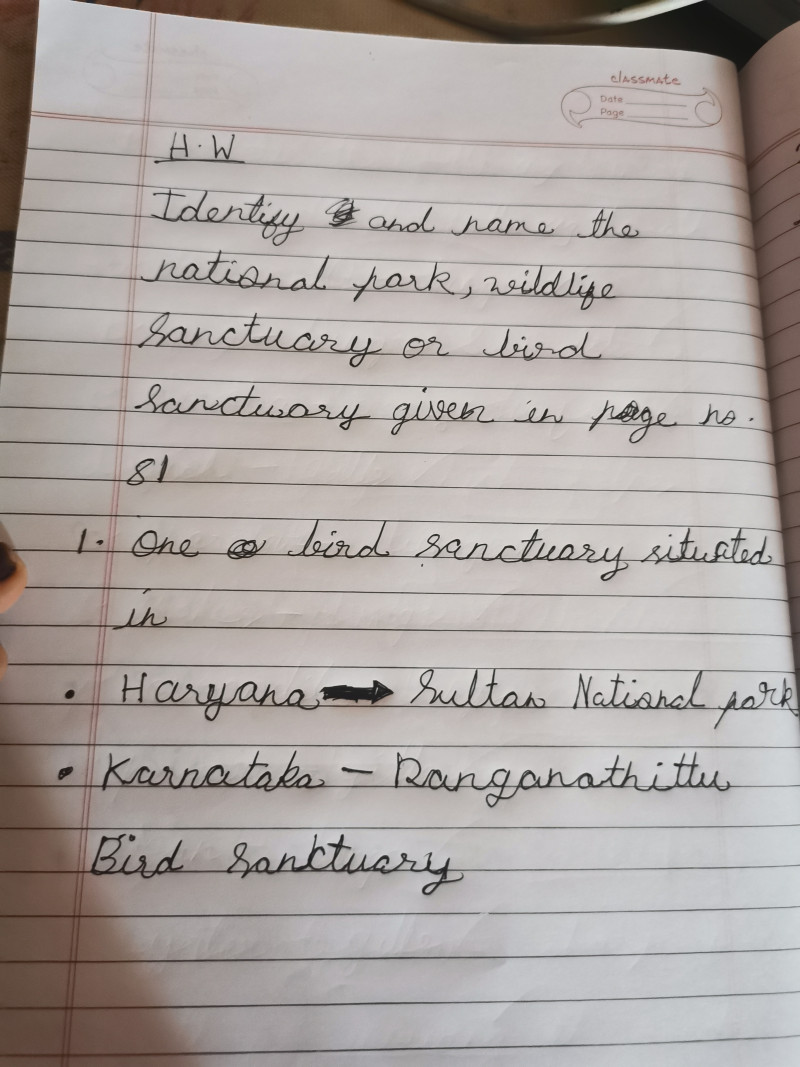 classmate
Date
Page
H.W
Identify and name the
national park, wildlife
sanctuary or bird
sanctuary given in page no.
81
1. One bird sanctuary situated
in
• Haryana → Sultan National park
• Karnataka – Ranganathittu
Bird Sanctuary